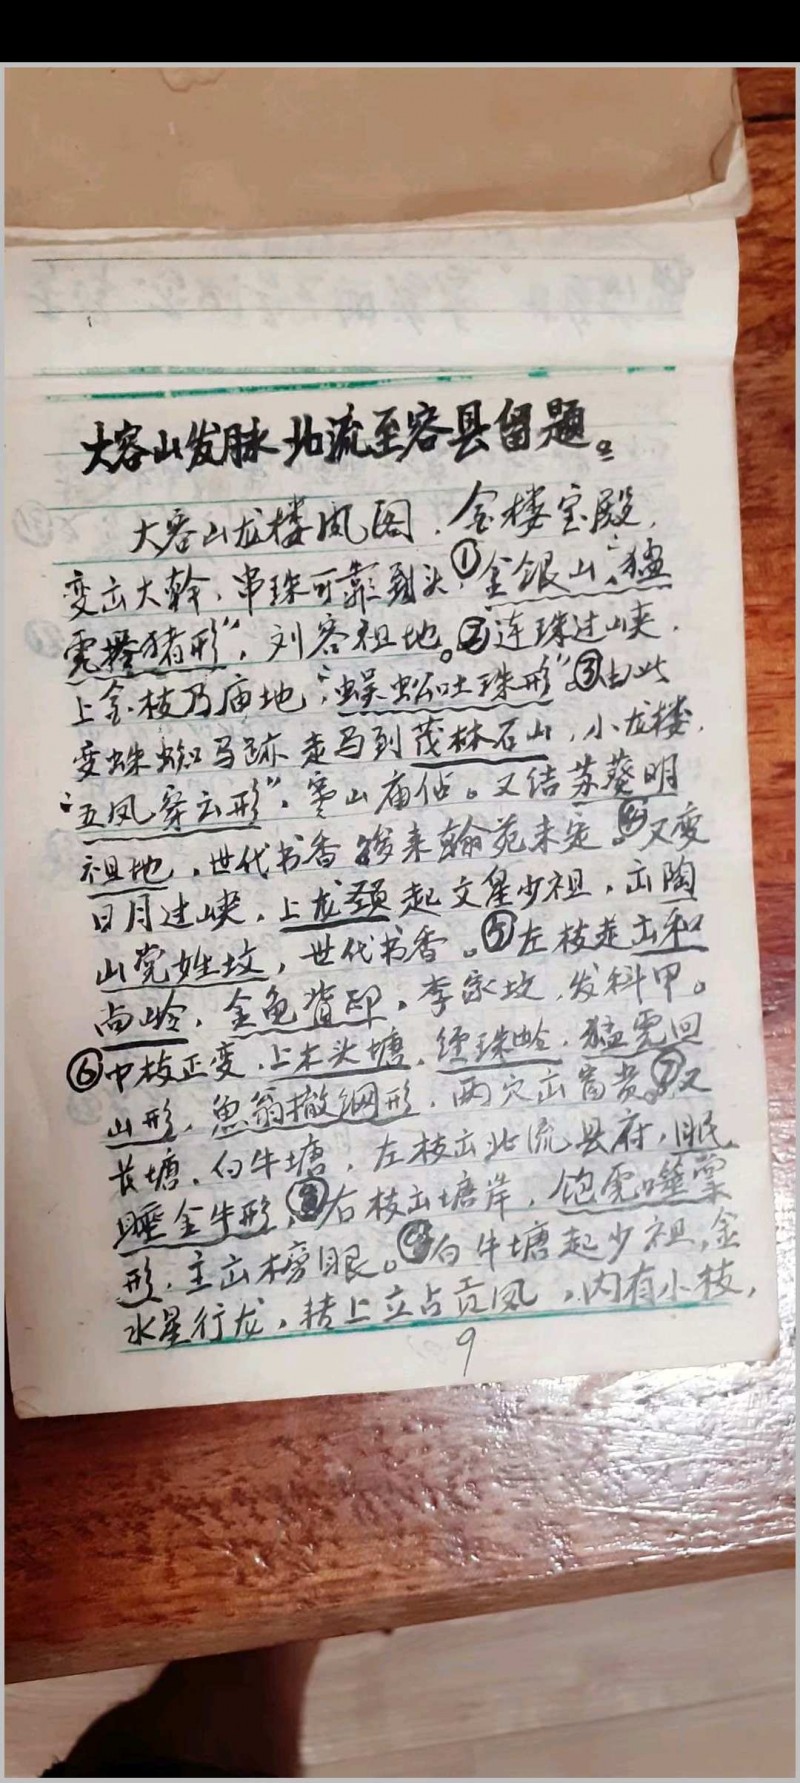 大容山发脉北流至容县留题。
大容山龙楼凤阁,金楼宝殿,
变出大幹,串珠可靠到头,①金银山,“猛
虎擒猪形”,刘容祖地。②连珠过峡,
上金枝乃庙地,“蜈蚣吐珠形”。③由此
变蛛蜘马迹走马到茂林石山,小龙楼,
“五凤穿云形”,寒山庙佔。又结苏葵明
祖地,世代书香 后来翰苑未定。④又变
日月过峡,上龙颈起文星少祖,出陶
山党姓坟,世代书香。⑤左枝走出和
尚岭,金龟背印,李家坟,发科甲。
⑥中枝正变,上木头塘,经珠岭,猛虎回
山形,魚翁撒網形,两穴出富贵。⑦又
长塘,白牛塘,左枝出北流县府,眠
睡金牛形,⑧右枝出塘岸,饱虎噬棠
形,主出榜眼。⑨白牛塘起少祖,金
水星行龙,转上立占贡凤,内有小枝,
9